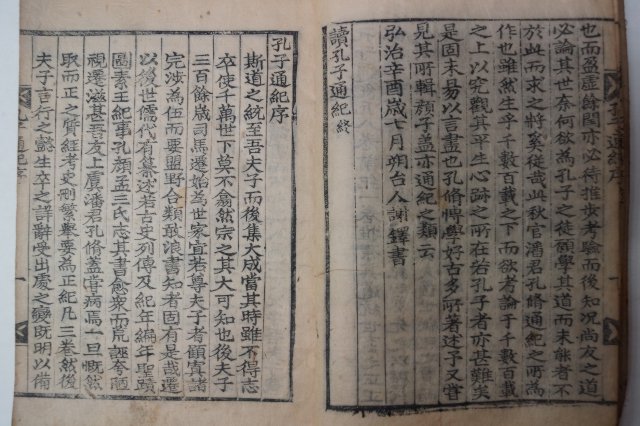 也而盈虛餘閏亦必待推步考驗而後知況尚友之道
必論其世奈何欲為孔子之徒願學其道而末能者不
於此而求之將奚從哉此秋官潘君孔脩通紀之所為
作也雖然生乎千數百載之下而欲考論于千數百載
之上以究觀其平生心跡之所在若孔子者亦甚難矣
是固未易以言盡也孔脩博學好古多所著述予又嘗
見其所輯顔子蓋亦通紀之類云
弘治辛酉歲七月朔台人謝鐸書
讀孔子通紀終
孔子通紀序
斯道之統至吾夫子而後集大成當其時雖不得志
卒使千萬世下莫不翕然宗之其大可知也後夫子
三百餘歲司馬遷始為世家宜若尊夫子者顧寘諸
完涉為伍而要盟野合類敢浪書知者固有是哉遷
以後世儒代有集述若古史列傳及紀年編年聖蹟
圖素王紀事孔顔孟三氏志其書愈衆而荒誕夸陋
視遷滋甚吾友上虞潘君孔脩蓋嘗病焉一旦慨然
取而正之質經考史刪繁擧要為正紀凡三卷然後
夫子言行之懿生卒之詳辭受出處之變既明以備